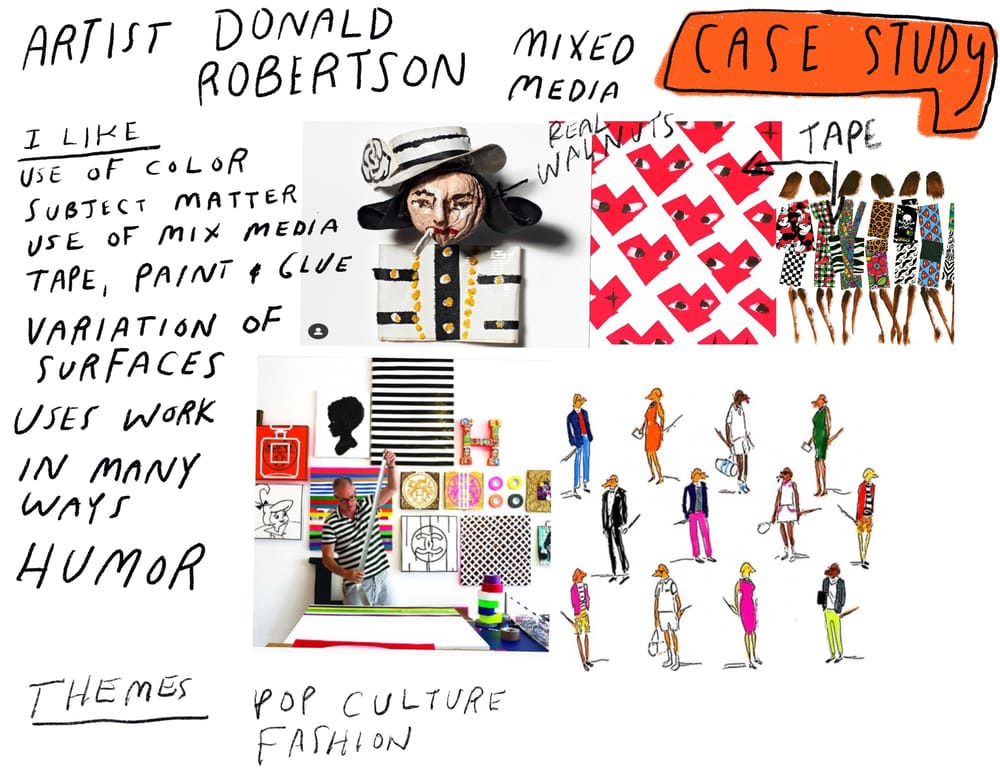 ARTIST DONALD
ROBERTSON
MIXED
MEDIA
CASE STUDY
I LIKE
USE OF COLOR
SUBJECT MATTER
USE OF MIX MEDIA
TAPE, PAINT & GLUE
VARIATION OF
SURFACES
USES WORK
IN MANY
WAYS
HUMOR
REAL
WALNUTS
TAPE
H
THEMES
POP CULTURE
FASHION